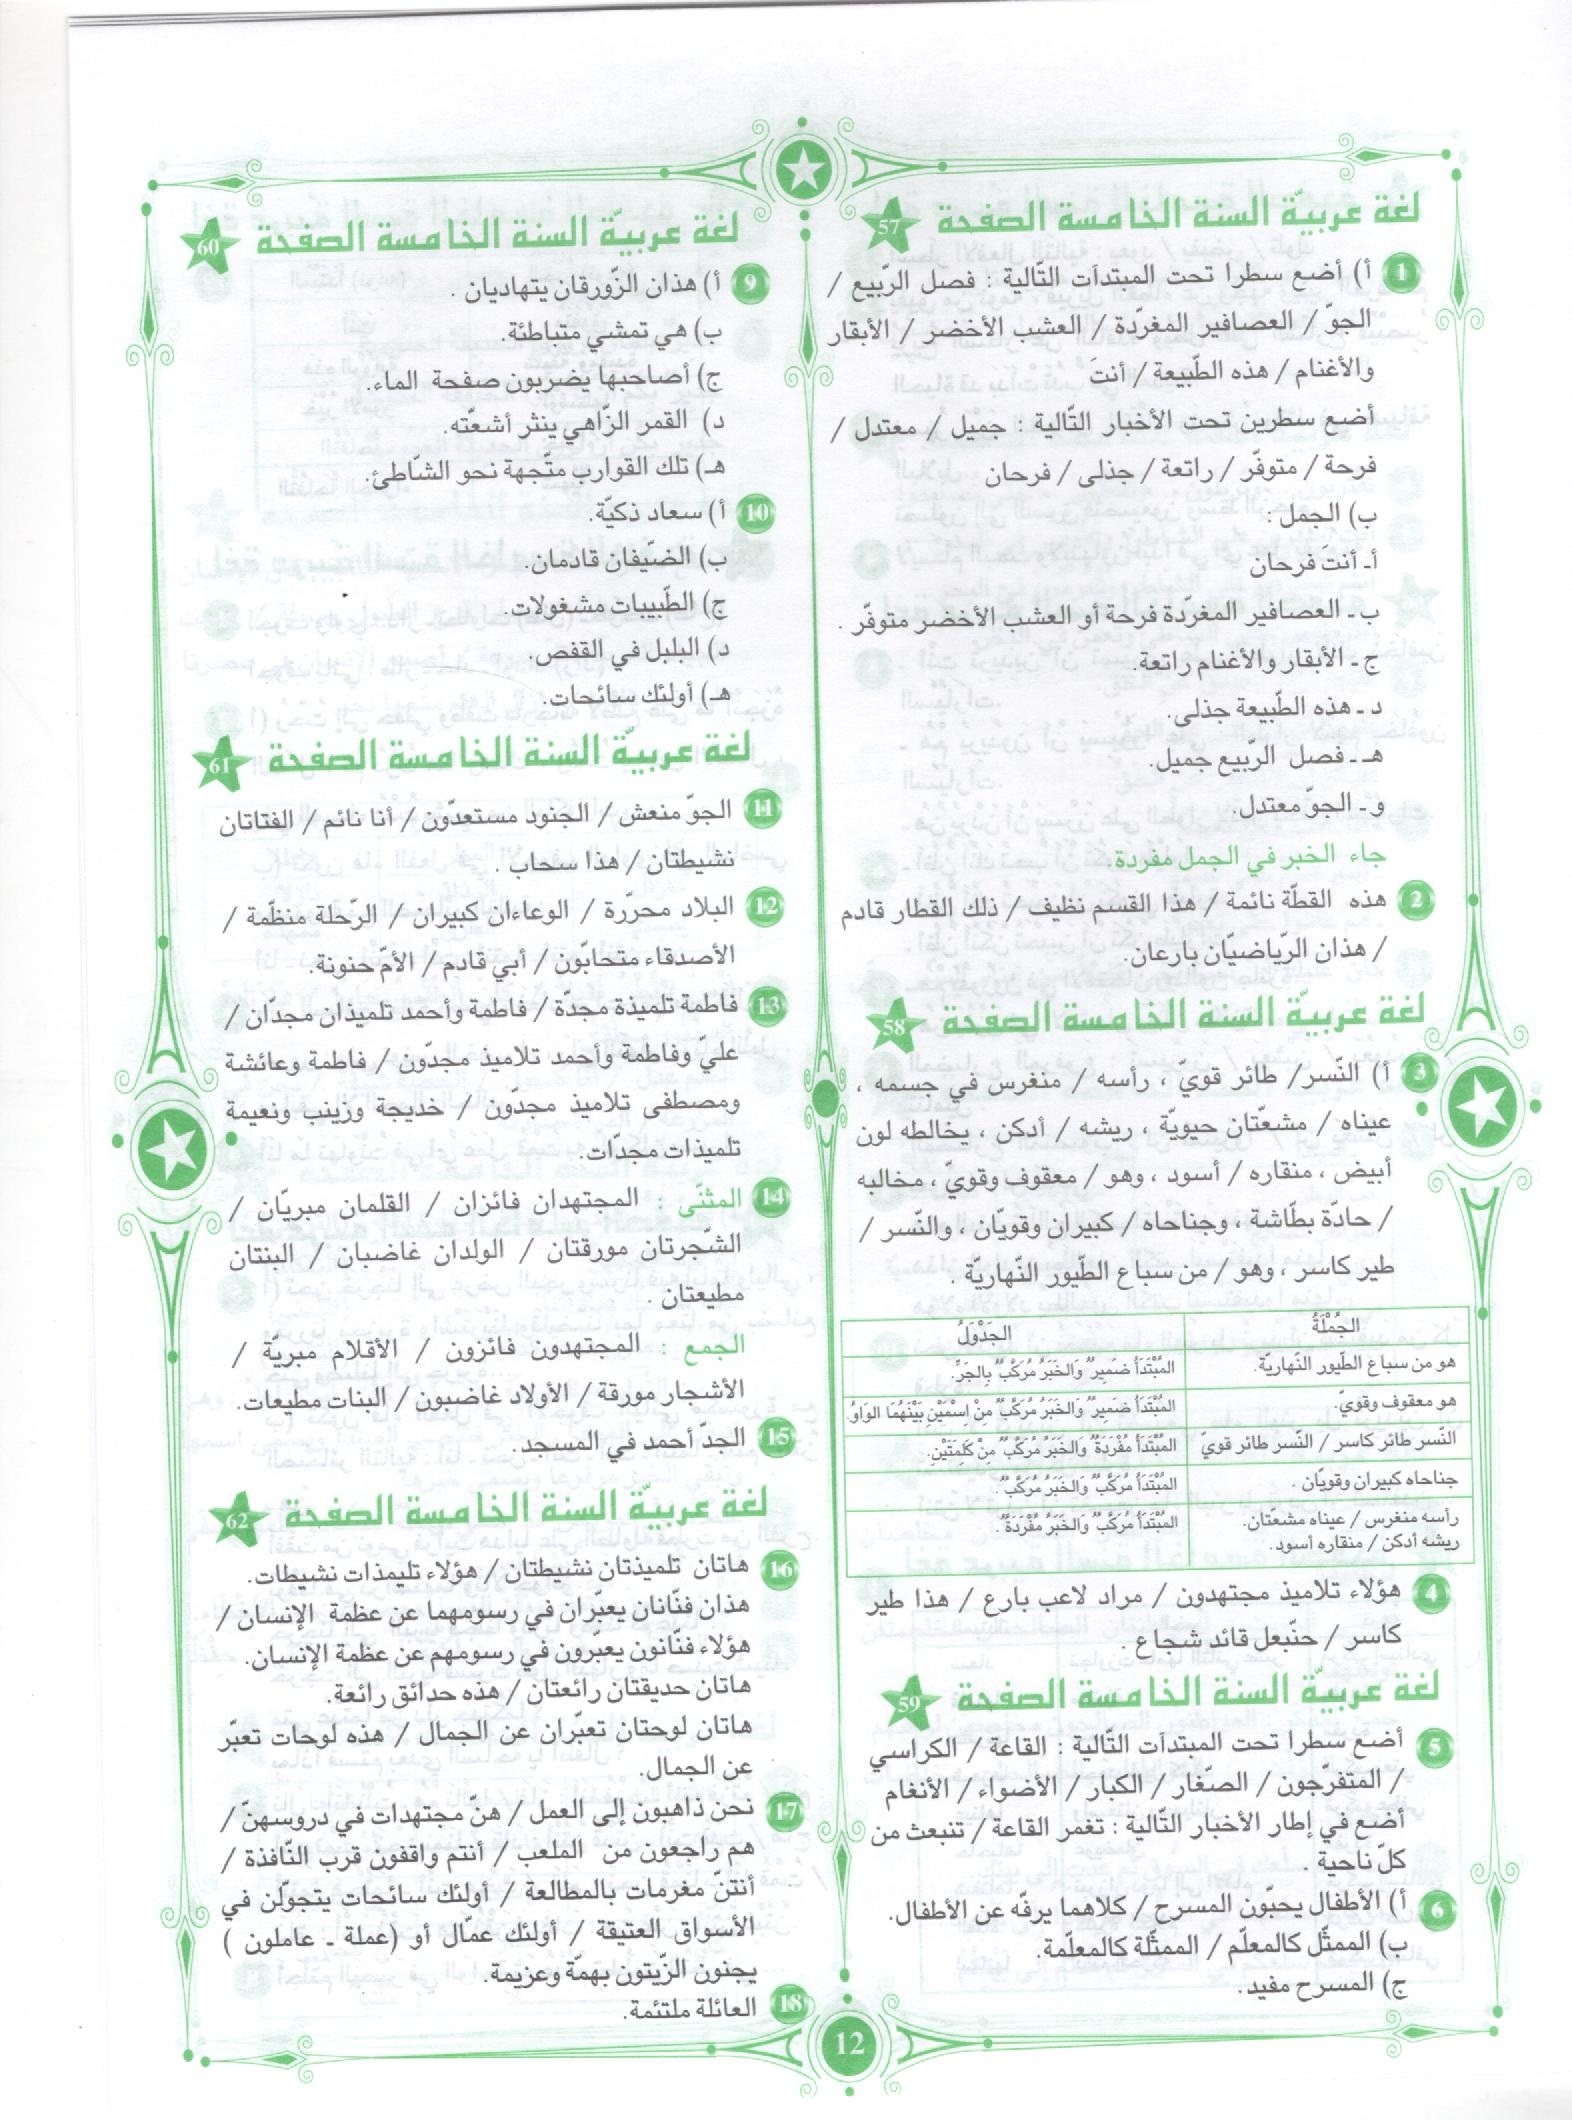 لغة عربيّة السنة الخامسة الصفحة 57
1 أ) أضع سطرا تحت المبتدآت التّالية : فصل الرّبيع /
الجوّ / العصافير المغرّدة / العشب الأخضر / الأبقار
والأغنام / هذه الطّبيعة / أنتَ
أضع سطرين تحت الأخبار التّالية : جميل / معتدل /
فرحة / متوفّر / راتعة / جذلى / فرحان
ب) الجمل :
أ- أنتَ فرحان
ب - العصافير المغرّدة فرحة أو العشب الأخضر متوفّر .
ج - الأبقار والأغنام راتعة.
د - هذه الطّبيعة جذلى.
هـ - فصل الرّبيع جميل.
و - الجوّ معتدل.
جاء الخبر في الجمل مفردة.
2 هذه القطّة نائمة / هذا القسم نظيف / ذلك القطار قادم
/ هذان الرّياضيّان بارعان.
لغة عربيّة السنة الخامسة الصفحة 58
3 أ) النّسر/ طائر قويّ ، رأسه / منغرس في جسمه ،
عيناه / مشعّتان حيويّة ، ريشه / أدكن ، يخالطه لون
أبيض ، منقاره / أسود ، وهو / معقوف وقويّ ، مخالبه
/ حادّة بطّاشة ، وجناحاه / كبيران وقويّان ، والنّسر /
طير كاسر ، وهو / من سباع الطّيور النّهاريّة .
الجُمْلَةُ الجَدْوَلُ
هو من سباع الطّيور النّهاريّة. المُبْتَدَأُ ضَمِيرٌ وَالخَبَرُ مُرَكَّبٌ بِالجَرِّ.
هو معقوف وقويّ. المُبْتَدَأُ ضَمِيرٌ وَالخَبَرُ مُرَكَّبٌ مِنْ اِسْمَيْنِ بَيْنَهُمَا الوَاوُ.
النّسر طائر كاسر / النّسر طائر قويّ المُبْتَدَأُ مُفْرَدَةٌ وَالخَبَرُ مُرَكَّبٌ مِنْ كَلِمَتَيْنِ.
جناحاه كبيران وقويّان . المُبْتَدَأُ مُرَكَّبٌ وَالخَبَرُ مُرَكَّبٌ .
رأسه منغرس / عيناه مشعّتان. المُبْتَدَأُ مُرَكَّبٌ وَالخَبَرُ مُفْرَدَةٌ .
ريشه أدكن / منقاره أسود.
4 هؤلاء تلاميذ مجتهدون / مراد لاعب بارع / هذا طير
كاسر / حنّبعل قائد شجاع .
لغة عربيّة السنة الخامسة الصفحة 59
5 أضع سطرا تحت المبتدآت التّالية : القاعة / الكراسي
/ المتفرّجون / الصّغار / الكبار / الأضواء / الأنغام
أضع في إطار الأخبار التّالية : تغمر القاعة / تنبعث من
كلّ ناحية .
6 أ) الأطفال يحبّون المسرح / كلاهما يرفّه عن الأطفال.
ب) الممثّل كالمعلّم / الممثّلة كالمعلّمة.
ج) المسرح مفيد.
لغة عربيّة السنة الخامسة الصفحة 60
9 أ) هذان الزّورقان يتهاديان .
ب) هي تمشي متباطئة.
ج) أصاحبها يضربون صفحة الماء.
د) القمر الزّاهي ينثر أشعّته.
هـ) تلك القوارب متّجهة نحو الشّاطئ.
10 أ) سعاد ذكيّة.
ب) الضّيفان قادمان.
ج) الطّبيبات مشغولات.
د) البلبل في القفص.
هـ) أولئك سائحات.
لغة عربيّة السنة الخامسة الصفحة 61
11 الجوّ منعش / الجنود مستعدّون / أنا نائم / الفتاتان
نشيطتان / هذا سحاب .
12 البلاد محرّرة / الوعاءان كبيران / الرّحلة منظّمة /
الأصدقاء متحابّون / أبي قادم / الأمّ حنونة.
13 فاطمة تلميذة مجدّة / فاطمة وأحمد تلميذان مجدّان /
عليّ وفاطمة وأحمد تلاميذ مجدّون / فاطمة وعائشة
ومصطفى تلاميذ مجدّون / خديجة وزينب ونعيمة
تلميذات مجدّات.
14 المثنّى : المجتهدان فائزان / القلمان مبريّان /
الشّجرتان مورقتان / الولدان غاضبان / البنتان
مطيعتان .
الجمع : المجتهدون فائزون / الأقلام مبريّة /
الأشجار مورقة / الأولاد غاضبون / البنات مطيعات.
15 الجدّ أحمد في المسجد.
لغة عربيّة السنة الخامسة الصفحة 62
16 هاتان تلميذتان نشيطتان / هؤلاء تليمذات نشيطات.
هذان فنّانان يعبّران في رسومهما عن عظمة الإنسان /
هؤلاء فنّانون يعبّرون في رسومهم عن عظمة الإنسان.
هاتان حديقتان رائعتان / هذه حدائق رائعة.
هاتان لوحتان تعبّران عن الجمال / هذه لوحات تعبّر
عن الجمال.
17 نحن ذاهبون إلى العمل / هنّ مجتهدات في دروسهنّ /
هم راجعون من الملعب / أنتم واقفون قرب النّافذة /
أنتنّ مغرمات بالمطالعة / أولئك سائحات يتجولّن في
الأسواق العتيقة / أولئك عمّال أو (عملة - عاملون )
يجنون الزّيتون بهمّة وعزيمة.
18 العائلة ملتئمة.
12